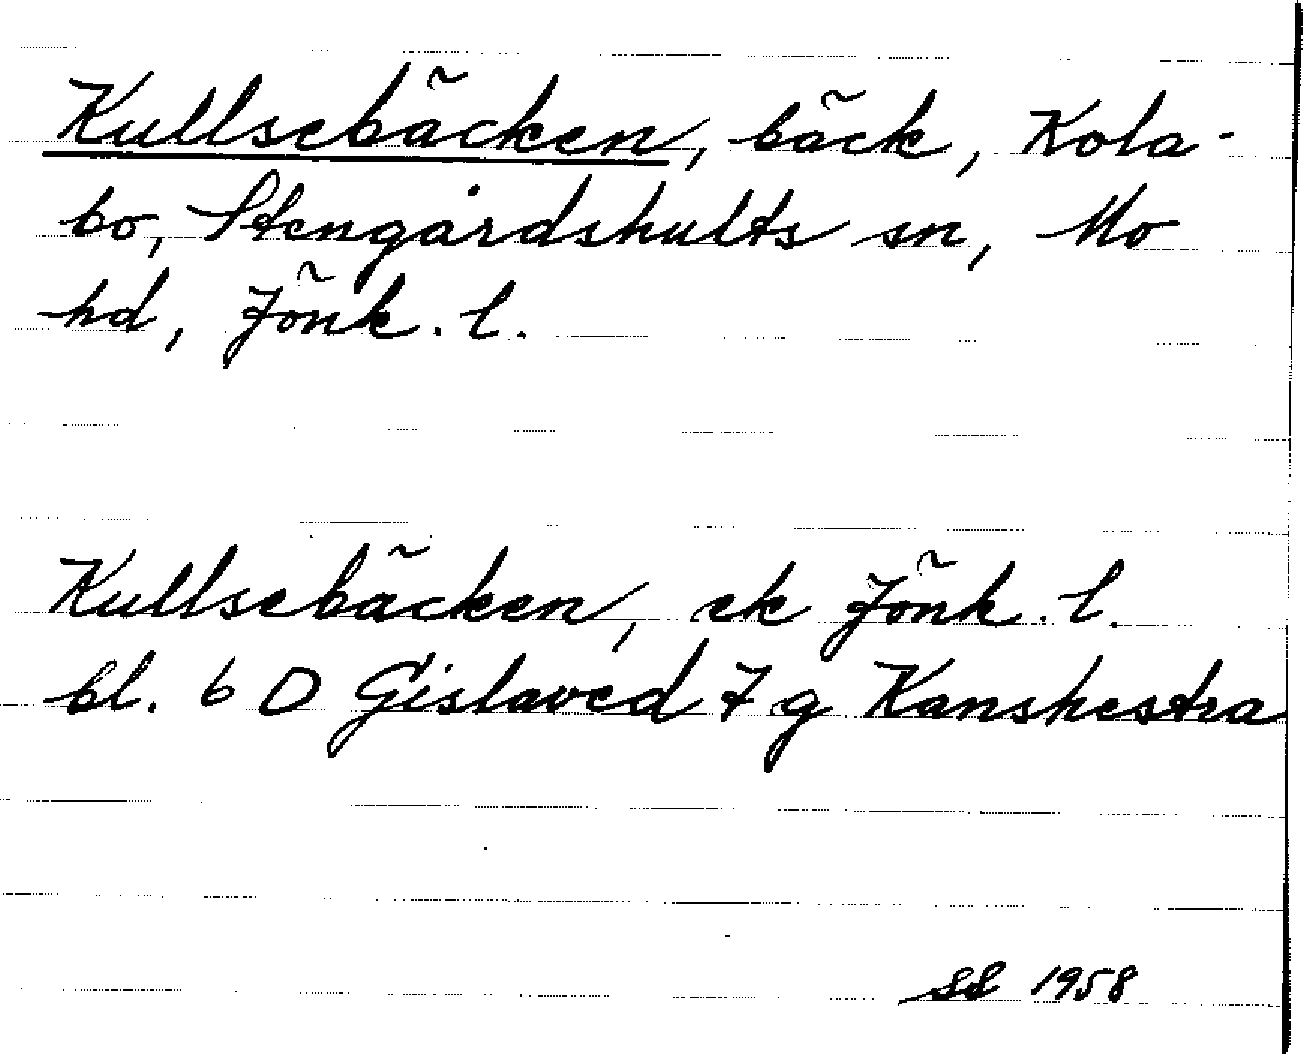 Kullsebäcken, bäck, Kola-
bo, Stengårdshults sn, Mo
hd, Jönk. l.
Kullsebäcken, ek Jönk. l.
bl. 6 D Gislaved 7 g Kanshestra
SS 1958